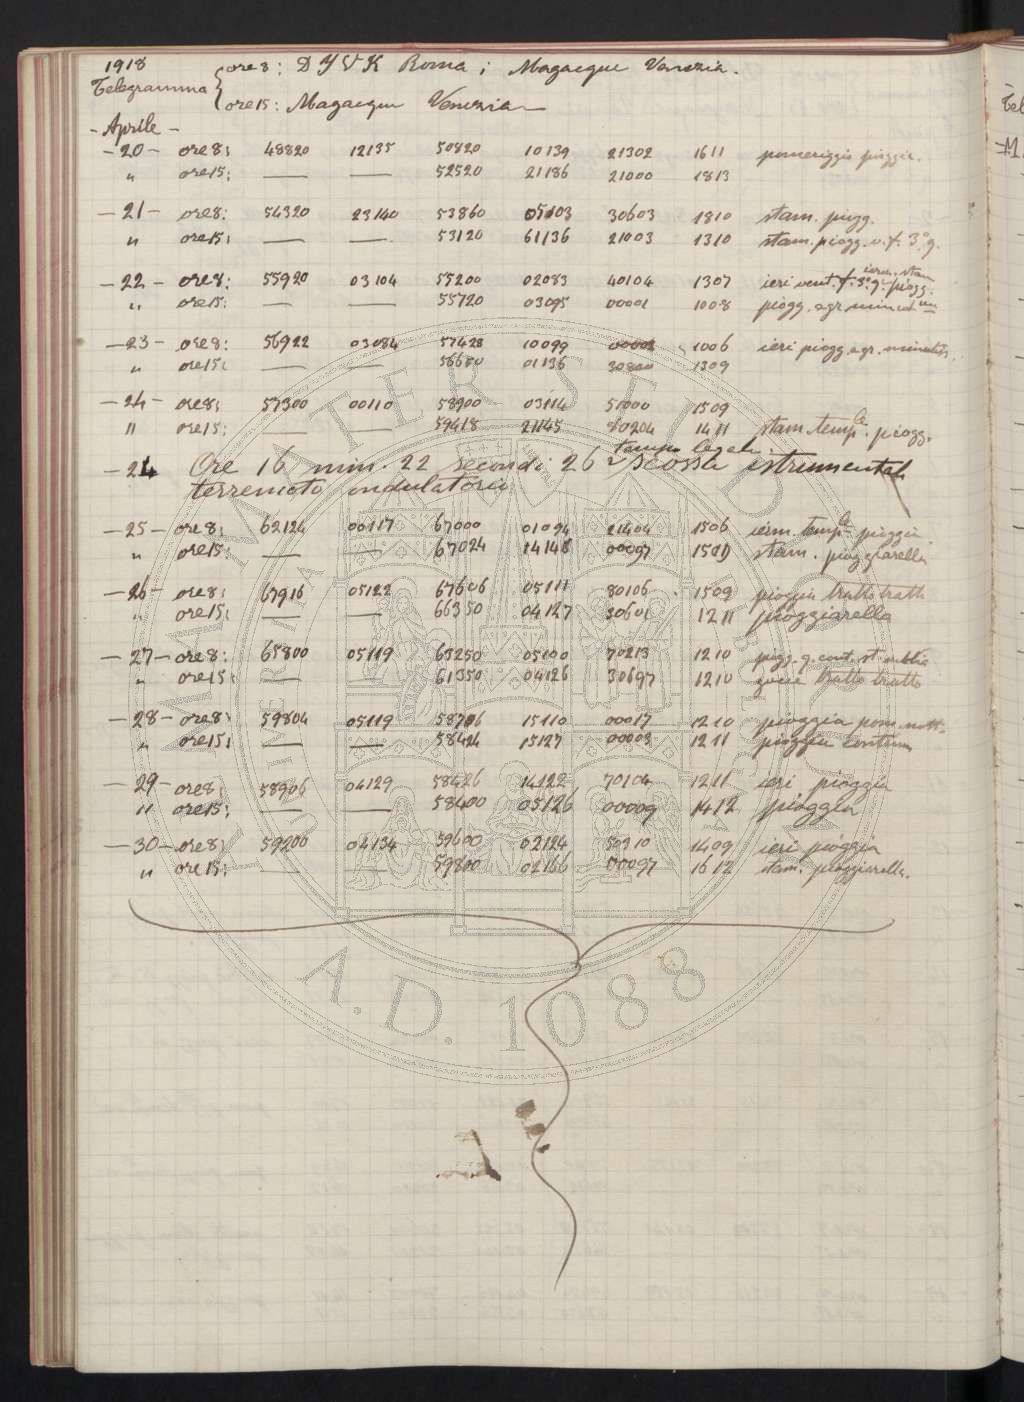 1918
Telegramma
ore 8: D Y V K Roma; Magacque Venezia.
ore 15: Magacque Venezia
- Aprile -
- 20 - ore 8: 48820 12135 50820 10139 21302 1611 pomeriggio pioggia.
" ore 15: — — 52520 21186 21000 1813
- 21 - ore 8: 54320 23140 53860 05103 30603 1810 stam. piogg.
" ore 15: — — 53120 61136 21003 1310 stam. piogg. v. f. 3° g.
- 22 - ore 8: 55920 03104 55200 02083 40104 1307 ieri vent. f. 3° g. piogg.
" ore 15: — — 55720 03095 00001 1008 piogg.
- 23 - ore 8: 56922 03084 57428 10099 00002 1006 ieri piogg.
" ore 15: — — 56680 01136 30800 1309
- 24 - ore 8: 57300 00110 58900 03114 51000 1509
" ore 15: — — 59418 21145 80204 1411 stam. temp.le piogg.
tempo legale
- 24 Ore 16 min. 22 secondi 26 scossa istrumentale
terremoto ondulatorio
- 25 - ore 8: 62124 00117 67000 01094 21404 1506 temp.le pioggia
" ore 15: — — 67024 14148 00097 1509 stam. pioggiarella
- 26 - ore 8: 67916 05122 67606 05111 80106 1509 pioggia tratto tratto
" ore 15: — - 66350 04127 30601 1211 pioggiarella
- 27 - ore 8: 65800 05119 63250 05100 70213 1210 piogg.
" ore 15: — 61350 04126 30697 1210 tratto tratto
- 28 - ore 8: 59804 05119 58706 15110 00017 1210 pioggia pom. nott.
" ore 15: — — 58424 15127 00003 1211 pioggia continua
- 29 - ore 8: 58906 04129 58426 14122 70104 1211 ieri pioggia
" ore 15: — — 58400 05126 00009 1412 pioggia
- 30 - ore 8: 59200 02134 59600 02124 50310 1409 ieri pioggia
" ore 15: — — 59800 02166 00097 1612 stam. pioggiarella.
ALMA MATER STUDIORUM
A.D. 1088